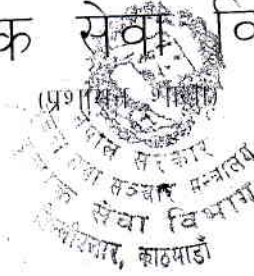 क सेवा वि
(प्रशासन शाखा)
नेपाल सरकार
तथा सञ्चार मन्त्रालय
सेवा विभाग
डिल्लीबजार, काठमाडौं